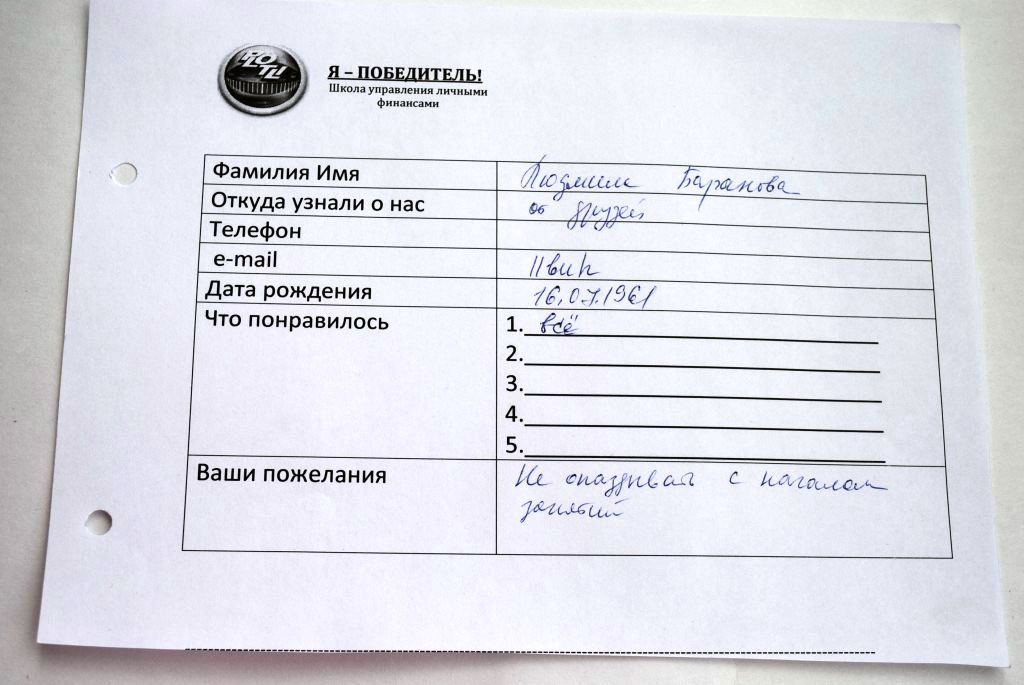 Я – ПОБЕДИТЕЛЬ!
Школа управления личными
финансами
Фамилия Имя Людмила Баранова
Откуда узнали о нас от друзей
Телефон
e-mail
Дата рождения 16.07.1961
Что понравилось 1. всё
2.
3.
4.
5.
Ваши пожелания Не опаздывать с началом
занятий